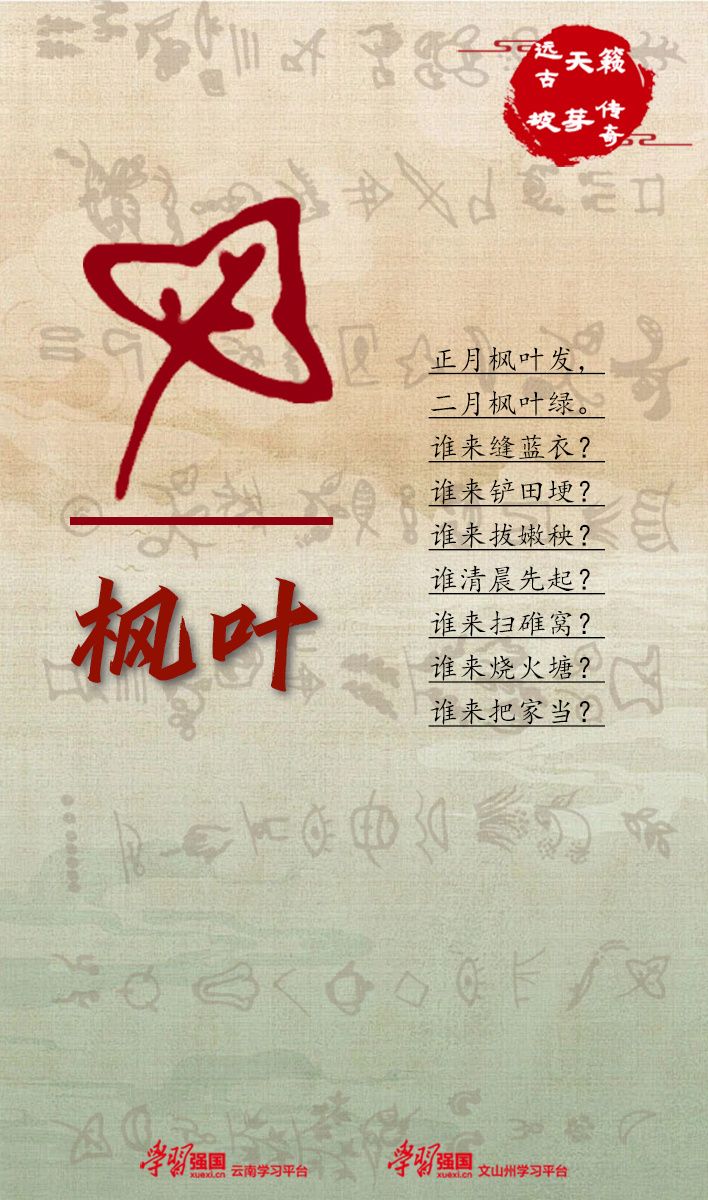 远古天籁
坡芽传奇
枫叶
正月枫叶发，
二月枫叶绿。
谁来缝蓝衣？
谁来铲田埂？
谁来拔嫩秧？
谁清晨先起？
谁来扫碓窝？
谁来烧火塘？
谁来把家当？
学习强国 xuexi.cn 云南学习平台
学习强国 xuexi.cn 文山州学习平台